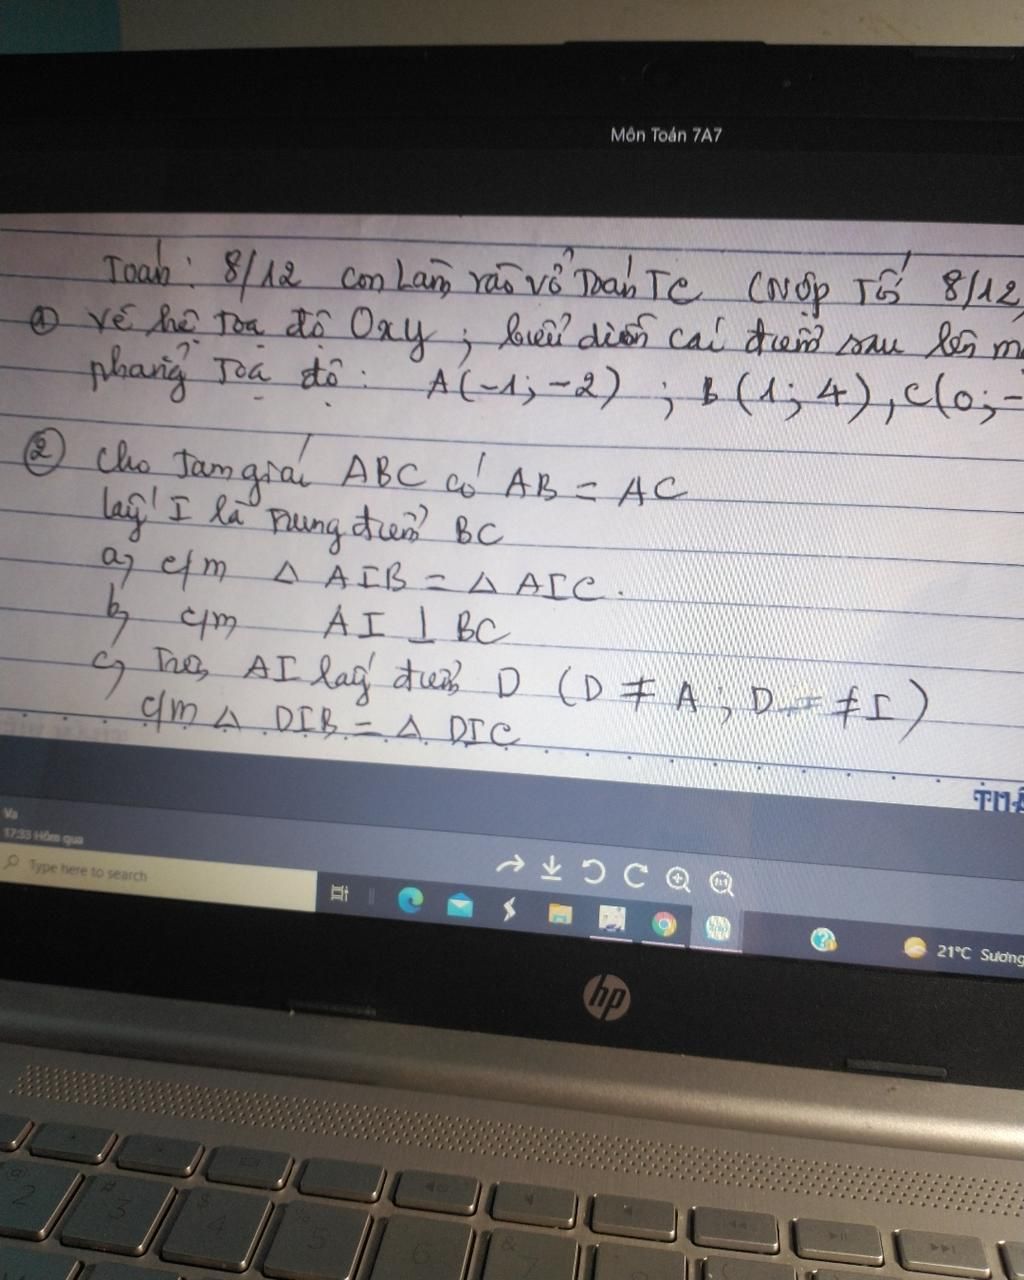 Môn Toán 7A7
Toán: 8/12 con làm vào vở Toán TC (Nộp Tối 8/12,
① Vẽ hệ Toạ độ Oxy; biểu diễn các điểm sau lên m
phẳng Toạ độ: A(-1; -2) ; B(1; 4), C(0; -
② Cho Tam giác ABC có AB = AC
lấy I là Trung điểm BC
a, c/m Δ AIB = Δ AIC.
b, c/m AI ⊥ BC
c, Trên AI lấy điểm D (D ≠ A; D ≠ I)
c/m Δ DIB = Δ DIC
Va
17:33 Hôm qua
Type here to search
21°C Sương
hp